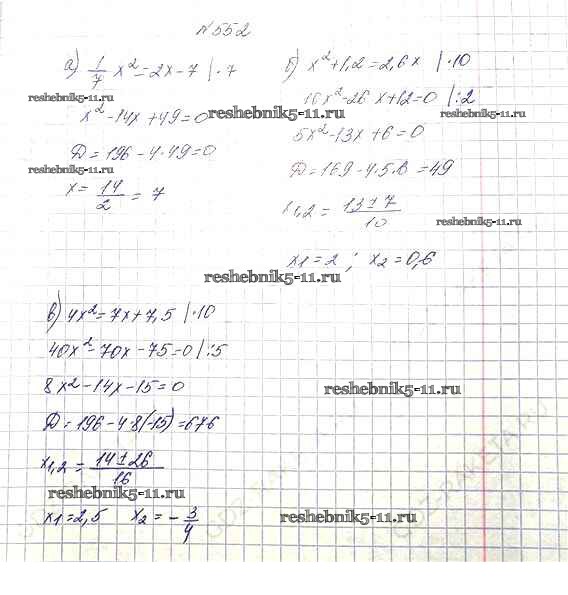 №552
а) 1/7 x² = 2x - 7 | · 7
reshebnik5-11.ru
x² - 14x + 49 = 0
Д = 196 - 4 · 49 = 0
reshebnik5-11.ru
x = 14/2 = 7
б) x² + 1,2 = 2,6x | · 10
10x² - 26x + 12 = 0 | : 2
reshebnik5-11.ru
5x² - 13x + 6 = 0
Д = 169 - 4 · 5 · 6 = 49
x1,2 = 13 ± 7 / 10
reshebnik5-11.ru
x1 = 2 ; x2 = 0,6
reshebnik5-11.ru
в) 4x² = 7x + 7,5 | · 10
40x² - 70x - 75 = 0 | : 5
8x² - 14x - 15 = 0
reshebnik5-11.ru
Д = 196 - 4·8(-15) = 676
x1,2 = 14 ± 26 / 16
reshebnik5-11.ru
x1 = 2,5 x2 = - 3/4
reshebnik5-11.ru